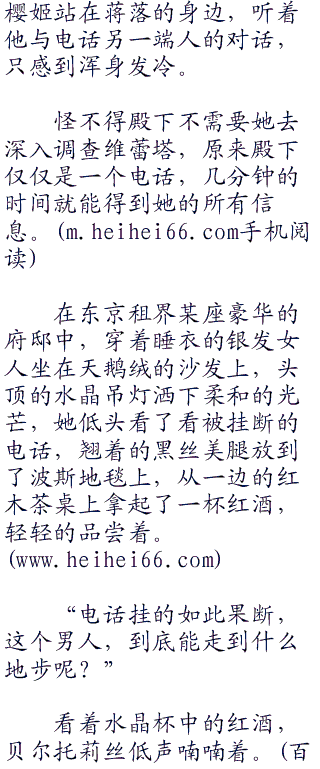 樱姬站在蒋落的身边，听着
他与电话另一端人的对话，
只感到浑身发冷。
怪不得殿下不需要她去
深入调查维蕾塔，原来殿下
仅仅是一个电话，几分钟的
时间就能得到她的所有信
息。(m.heihei66.com手机阅
读)
在东京租界某座豪华的
府邸中，穿着睡衣的银发女
人坐在天鹅绒的沙发上，头
顶的水晶吊灯洒下柔和的光
芒，她低头看了看被挂断的
电话，翘着的黑丝美腿放到
了波斯地毯上，从一边的红
木茶桌上拿起了一杯红酒，
轻轻的品尝着。
(www.heihei66.com)
“电话挂的如此果断，
这个男人，到底能走到什么
地步呢？”
看着水晶杯中的红酒，
贝尔托莉丝低声喃喃着。(百